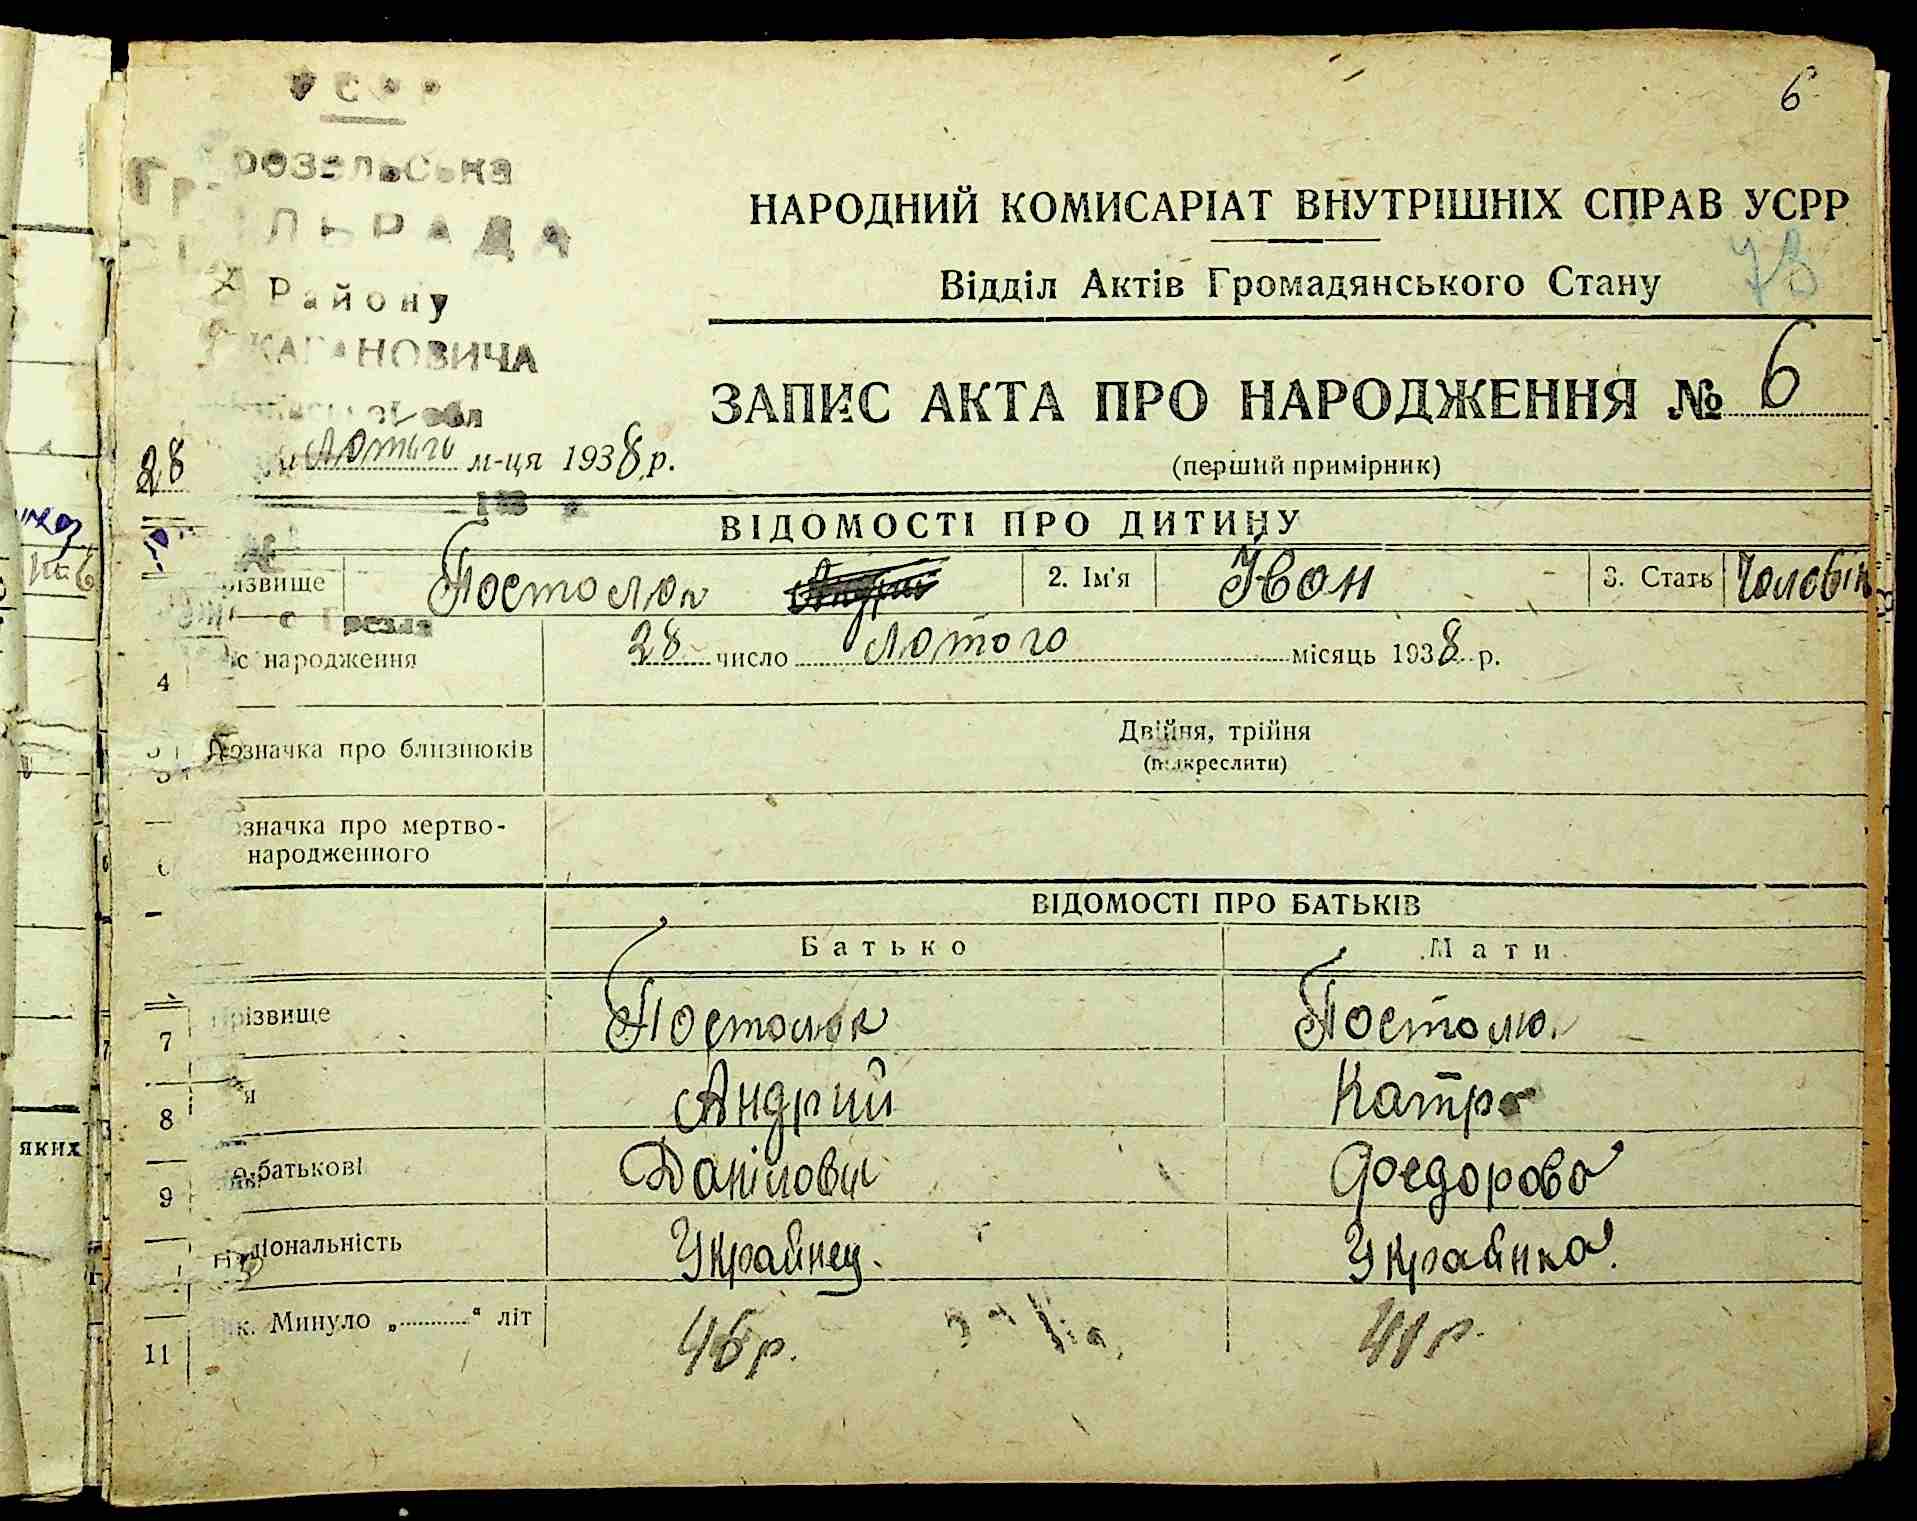 6
розельська
ЛЬРАДА
Району
КАГАНОВИЧА
обл
НАРОДНИЙ КОМИСАРІАТ ВНУТРІШНІХ СПРАВ УСРР
Відділ Актів Громадянського Стану
73
ЗАПИС АКТА ПРО НАРОДЖЕННЯ № 6
(перший примірник)
28 Лютого м-ця 1938 р.
ВІДОМОСТІ ПРО ДИТИНУ
ізвище Постолюк 2. Ім'я Іван 3. Стать Чоловік
4 с народження 28 число лютого місяць 1938 р.
5 означка про близнюків Двійня, трійня
(підкреслити)
6 означка про мертво-
народженного
ВІДОМОСТІ ПРО БАТЬКІВ
Батько Мати
7 Прізвище Постолюк Постолю
8 я Андрий Катра
9 по-батькові Данілович Фоедорова
Національність Украйнец. Украйнка.
11 Вік. Минуло „ “ літ 46 р. 41 р.
яких